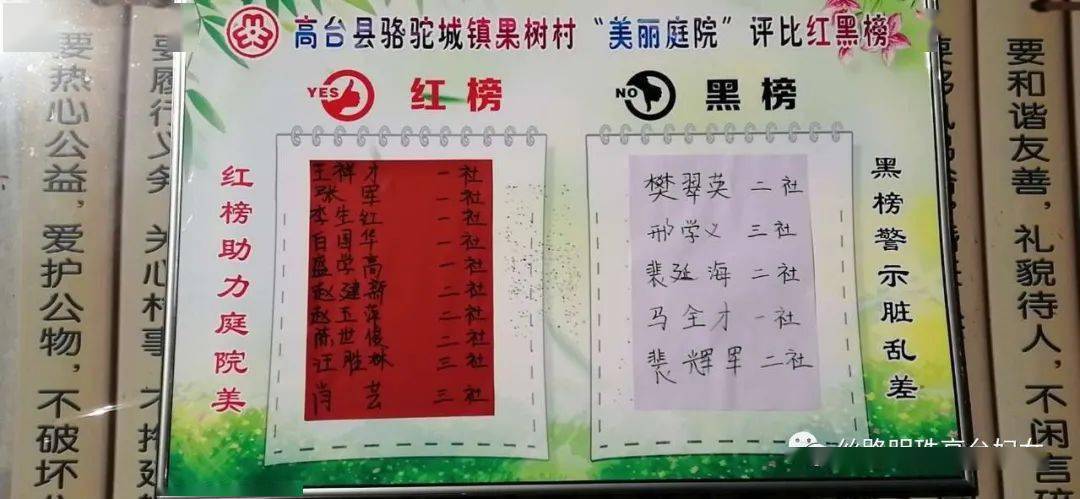 高台县骆驼城镇果树村“美丽庭院”评比红黑榜
YES 红榜
NO 黑榜
红榜助力庭院美
王祥才 一社
张军 一社
李生红 一社
白国华 一社
盛学高 一社
赵建新 二社
赵玉萍 二社
陈世俊 二社
汪胜林 三社
肖芸 三社
樊翠英 二社
邢学义 三社
裴延海 二社
马全才 一社
裴辉军 二社
黑榜警示脏乱差
要热心公益，爱护公物，不破坏
要履行义务，关心村事，不推
要和谐友善，礼貌待人，不闲言
丝路明珠高台妇女